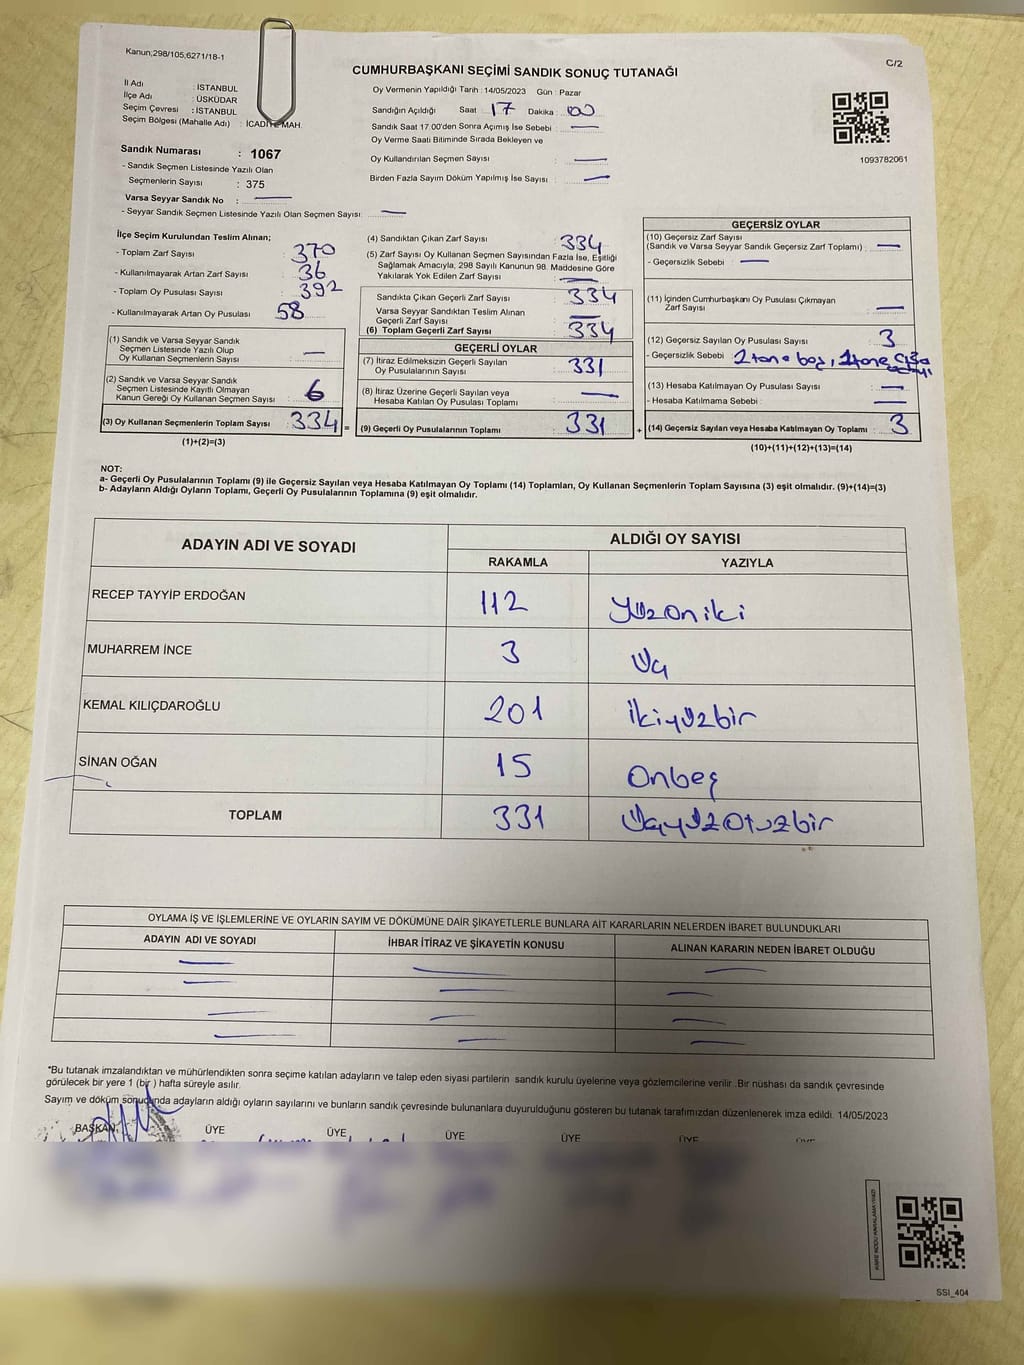 Kanun;298/105,6271/18-1
C/2
CUMHURBAŞKANI SEÇİMİ SANDIK SONUÇ TUTANAĞI
İl Adı : İSTANBUL
İlçe Adı : ÜSKÜDAR
Seçim Çevresi : İSTANBUL
Seçim Bölgesi (Mahalle Adı) : İCADİYE MAH.
Oy Vermenin Yapıldığı Tarih : 14/05/2023 Gün : Pazar
Sandığın Açıldığı Saat 17 Dakika : 00
Sandık Saat 17.00'den Sonra Açımış İse Sebebi : —
Oy Verme Saati Bitiminde Sırada Bekleyen ve
Oy Kullandırılan Seçmen Sayısı : —
Birden Fazla Sayım Döküm Yapılmış İse Sayısı : —
1093782061
Sandık Numarası : 1067
- Sandık Seçmen Listesinde Yazılı Olan
Seçmenlerin Sayısı : 375
Varsa Seyyar Sandık No : —
- Seyyar Sandık Seçmen Listesinde Yazılı Olan Seçmen Sayısı : —
İlçe Seçim Kurulundan Teslim Alınan;
- Toplam Zarf Sayısı : 370
- Kullanılmayarak Artan Zarf Sayısı : 36
- Toplam Oy Pusulası Sayısı : 392
- Kullanılmayarak Artan Oy Pusulası : 58
(1) Sandık ve Varsa Seyyar Sandık
Seçmen Listesinde Yazılı Olup
Oy Kullanan Seçmenlerin Sayısı : —
(2) Sandık ve Varsa Seyyar Sandık
Seçmen Listesinde Kayıtlı Olmayan
Kanun Gereği Oy Kullanan Seçmen Sayısı : 6
(3) Oy Kullanan Seçmenlerin Toplam Sayısı : 334 =
(1)+(2)=(3)
(4) Sandıktan Çıkan Zarf Sayısı : 334
(5) Zarf Sayısı Oy Kullanan Seçmen Sayısından Fazla İse, Eşitliği
Sağlamak Amacıyla, 298 Sayılı Kanunun 98. Maddesine Göre
Yakılarak Yok Edilen Zarf Sayısı : —
Sandıkta Çıkan Geçerli Zarf Sayısı : 334
Varsa Seyyar Sandıktan Teslim Alınan
Geçerli Zarf Sayısı : —
(6) Toplam Geçerli Zarf Sayısı : 334
GEÇERLİ OYLAR
(7) İtiraz Edilmeksizin Geçerli Sayılan
Oy Pusulalarının Sayısı : 331
(8) İtiraz Üzerine Geçerli Sayılan veya
Hesaba Katılan Oy Pusulası Toplamı : —
(9) Geçerli Oy Pusulalarının Toplamı : 331 +
GEÇERSİZ OYLAR
(10) Geçersiz Zarf Sayısı
(Sandık ve Varsa Seyyar Sandık Geçersiz Zarf Toplamı) : —
- Geçersizlik Sebebi : —
(11) İçinden Cumhurbaşkanı Oy Pusulası Çıkmayan
Zarf Sayısı : —
(12) Geçersiz Sayılan Oy Pusulası Sayısı : 3
- Geçersizlik Sebebi : 2 tane boş, 1 tane
(13) Hesaba Katılmayan Oy Pusulası Sayısı : —
- Hesaba Katılmama Sebebi : —
(14) Geçersiz Sayılan veya Hesaba Katılmayan Oy Toplamı : 3
(10)+(11)+(12)+(13)=(14)
NOT:
a- Geçerli Oy Pusulalarının Toplamı (9) ile Geçersiz Sayılan veya Hesaba Katılmayan Oy Toplamı (14) Toplamları, Oy Kullanan Seçmenlerin Toplam Sayısına (3) eşit olmalıdır. (9)+(14)=(3)
b- Adayların Aldığı Oyların Toplamı, Geçerli Oy Pusulalarının Toplamına (9) eşit olmalıdır.
ADAYIN ADI VE SOYADI
ALDIĞI OY SAYISI
RAKAMLA YAZIYLA
RECEP TAYYİP ERDOĞAN 112 Yüzoniki
MUHARREM İNCE 3 Üç
KEMAL KILIÇDAROĞLU 201 İkiyüzbir
SİNAN OĞAN 15 Onbeş
TOPLAM 331 Üçyüzotuzbir
OYLAMA İŞ VE İŞLEMLERİNE VE OYLARIN SAYIM VE DÖKÜMÜNE DAİR ŞİKAYETLERLE BUNLARA AİT KARARLARIN NELERDEN İBARET BULUNDUKLARI
ADAYIN ADI VE SOYADI İHBAR İTİRAZ VE ŞİKAYETİN KONUSU ALINAN KARARIN NEDEN İBARET OLDUĞU
*Bu tutanak imzalandıktan ve mühürlendikten sonra seçime katılan adayların ve talep eden siyasi partilerin sandık kurulu üyelerine veya gözlemcilerine verilir .Bir nüshası da sandık çevresinde
görülecek bir yere 1 (bir ) hafta süreyle asılır.
Sayım ve döküm sonucunda adayların aldığı oyların sayılarını ve bunların sandık çevresinde bulunanlara duyurulduğunu gösteren bu tutanak tarafımızdan düzenlenerek imza edildi. 14/05/2023
BAŞKAN ÜYE ÜYE ÜYE ÜYE ÜYE ÜYE
SSİ_404